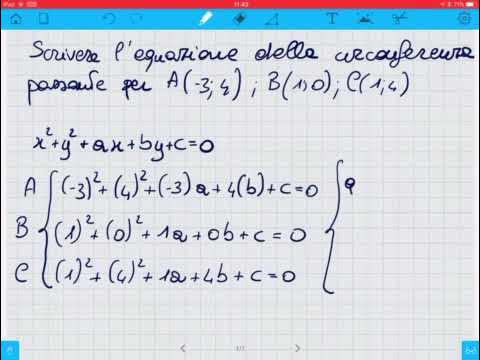 iPad 11:43 71%
Scrivere l'equazione della circonferenza
passante per A(-3;4); B(1;0); C(1;4)
x²+y²+ax+by+c=0
A {(-3)²+(4)²+(-3)a+4(b)+c=0 {9
B {(1)²+(0)²+1a+0b+c=0
C {(1)²+(4)²+1a+4b+c=0
1/1